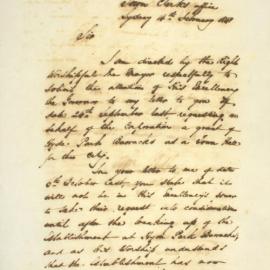 Town Clerk's Office
Sydney 14th February 181
Sir
I am directed by the Right
Worshipful the Mayor respectfully to
solicit the attention of His Excellency
the Governor to my letter to you of
date 28th September last requesting on
behalf of the Corporation a grant of
Hyde Park Barracks as a Town Hall
for this City.
In your letter to me of date
6th October last, you state that it
will not be in His Excellency's power
to take this request into consideration
until after the breaking up of the
Establishment at Hyde Park Barracks,
and as His Worship understands
that the Establishment has now